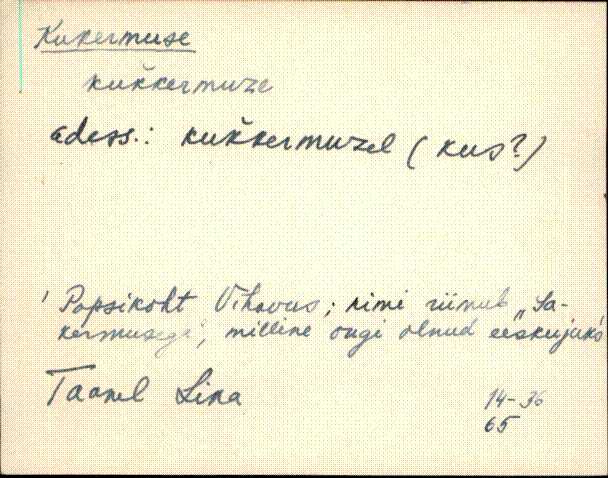 Kukermuse
kukkermuze
adess.: kukkermuzel (kus?)
' Popsikoht Vihavus; nimi riimub „Sa-
kermusega", milline ongi olnud eeskujuks
Taanel Lina
14-36
65